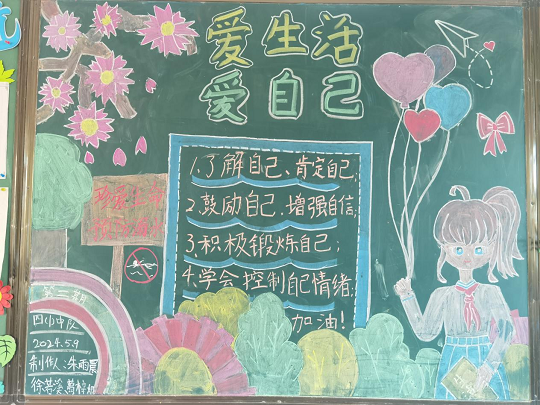 爱生活
爱自己
1.了解自己、肯定自己;
2.鼓励自己、增强自信;
3.积极锻炼自己;
4.学会控制自己情绪;
加油!
珍爱生命
预防溺水
第二期
四(1)中队
2024.5.9
制作人:朱雨晨